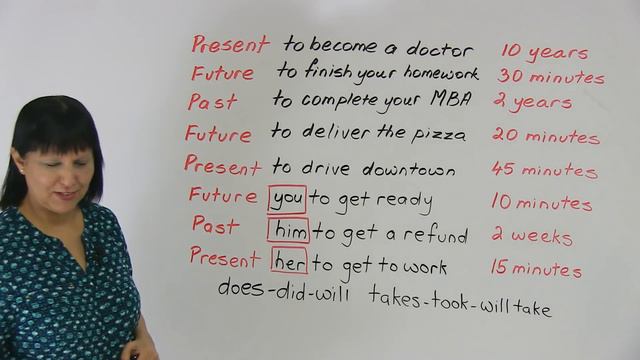 Present to become a doctor 10 years
Future to finish your homework 30 minutes
Past to complete your MBA 2 years
Future to deliver the pizza 20 minutes
Present to drive downtown 45 minutes
Future you to get ready 10 minutes
Past him to get a refund 2 weeks
Present her to get to work 15 minutes
does-did-will takes-took-will take